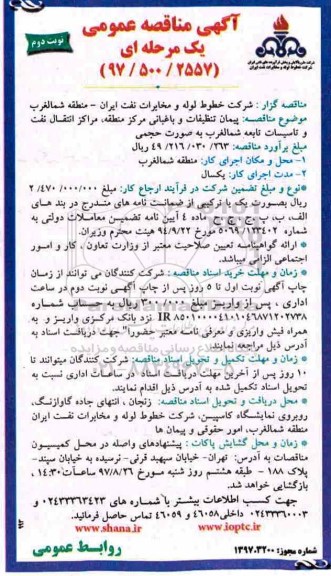 آگهی مناقصه عمومی
یک مرحله ای
(۹۷/ ۵۰۰ /۲۵۵۷)
نوبت دوم
شرکت خطوط لوله و مخابرات نفت ایران
مناقصه گزار : شرکت خطوط لوله و مخابرات نفت ایران - منطقه شمالغرب
موضوع مناقصه: پیمان تنظیفات و باغبانی مرکز منطقه، مراکز انتقال نفت
و تاسیسات تابعه شمالغرب به صورت حجمی
مبلغ برآورد مناقصه: ۴۹/۲۱۶/۰۳۰/۲۶۳ ریال
۱- محل و مکان اجرای کار: منطقه شمالغرب
۲- مدت اجرای کار: یکسال
*نوع و مبلغ تضمین شرکت در فرآیند ارجاع کار: مبلغ ۲/۴۷۰/۰۰۰/۰۰۰
ریال بصورت یک یا ترکیبی از ضمانت نامه های مندرج در بند های
الف، ب، پ، ج، چ، ح ماده ۴ آیین نامه تضمین معاملات دولتی به
شماره ۱۲۳۴۰۲/ت۵۰۶۵۹ه مورخ ۹۴/۹/۲۲ هیئت محترم وزیران.
* ارائه گواهینامه تعیین صلاحیت معتبر از وزارت تعاون ، کار و امور
اجتماعی الزامی میباشد.
* زمان و مهلت خرید اسناد مناقصه : شرکت کنندگان می توانند از زمان
چاپ آگهی نوبت اول تا ۵ روز پس از چاپ آگهی نوبت دوم در ساعت
اداری ، پس از واریز مبلغ ۳۰۰/۰۰۰ ریال به حساب شماره
نزد بانک مرکزی واریز و به
همراه فیش واریزی و معرفی نامه معتبر حضورا" جهت دریافت اسناد به
آدرس ذیل مراجعه نمایند.
* زمان و مهلت تکمیل و تحویل اسناد مناقصه: شرکت کنندگان میتوانند تا
۱۰ روز پس از آخرین مهلت دریافت اسناد در ساعات اداری نسبت به
تحویل اسناد تکمیل شده به آدرس ذیل اقدام نمایند.
* محل دریافت و تحویل اسناد مناقصه: زنجان ، انتهای جاده گاوازنگ،
روبروی نمایشگاه کاسپین، شرکت خطوط لوله و مخابرات نفت ایران
منطقه شمالغرب، امور حقوقی و پیمان ها
* زمان و محل گشایش پاکات : پیشنهادهای واصله در محل کمیسیون
مناقصات به آدرس: تهران- خیابان سپهبد قرنی- نرسیده به خیابان سپند-
پلاک ۱۸۸ - طبقه هشتم روز شنبه مورخ ۹۷/۸/۲۶ ساعت ۱۴:۳۰،
بازگشایی خواهد شد.
جهت کسب اطلاعات بیشتر با شماره های ۰۲۴۳۳۳۶۳۴۲۳ و
۰۲۴۳۳۳۶۰۰۰۳ داخلی ۴۶۰۵۸ و ۴۶۰۵۹ تماس حاصل فرمائید.
www.shana.ir www.ioptc.ir
شماره مجوز: ۱۳۹۷.۳۲۰۰
روابط عمومی